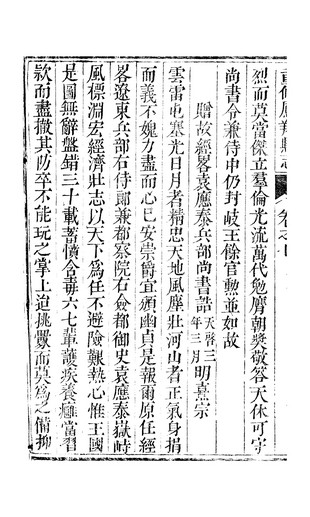 重修鳳翔縣志
卷之七
烈而莫當傑立羣倫光流萬代勉膺朝奬敬答天休可守
尚書令兼侍中仍封岐王餘官勲並如故
贈故經畧袁應泰兵部尚書誥天啓三年三月明熹宗
雲雷屯塞光日月者精忠天地風塵壯河山者正氣身捐
而義不媿力盡而心巳安崇爵宜頒幽貞是報爾原任經
畧遼東兵部右侍郎兼都察院右僉都御史袁應泰嶽峙
風標淵宏經濟壯志以天下為任不避險艱熱心惟王國
是圖無辭盤錯三十載蓄憤含毒六七輩護疾養癰當習
欵而盡撤其防卒不能玩之掌上迫挑釁而莫為之備抑